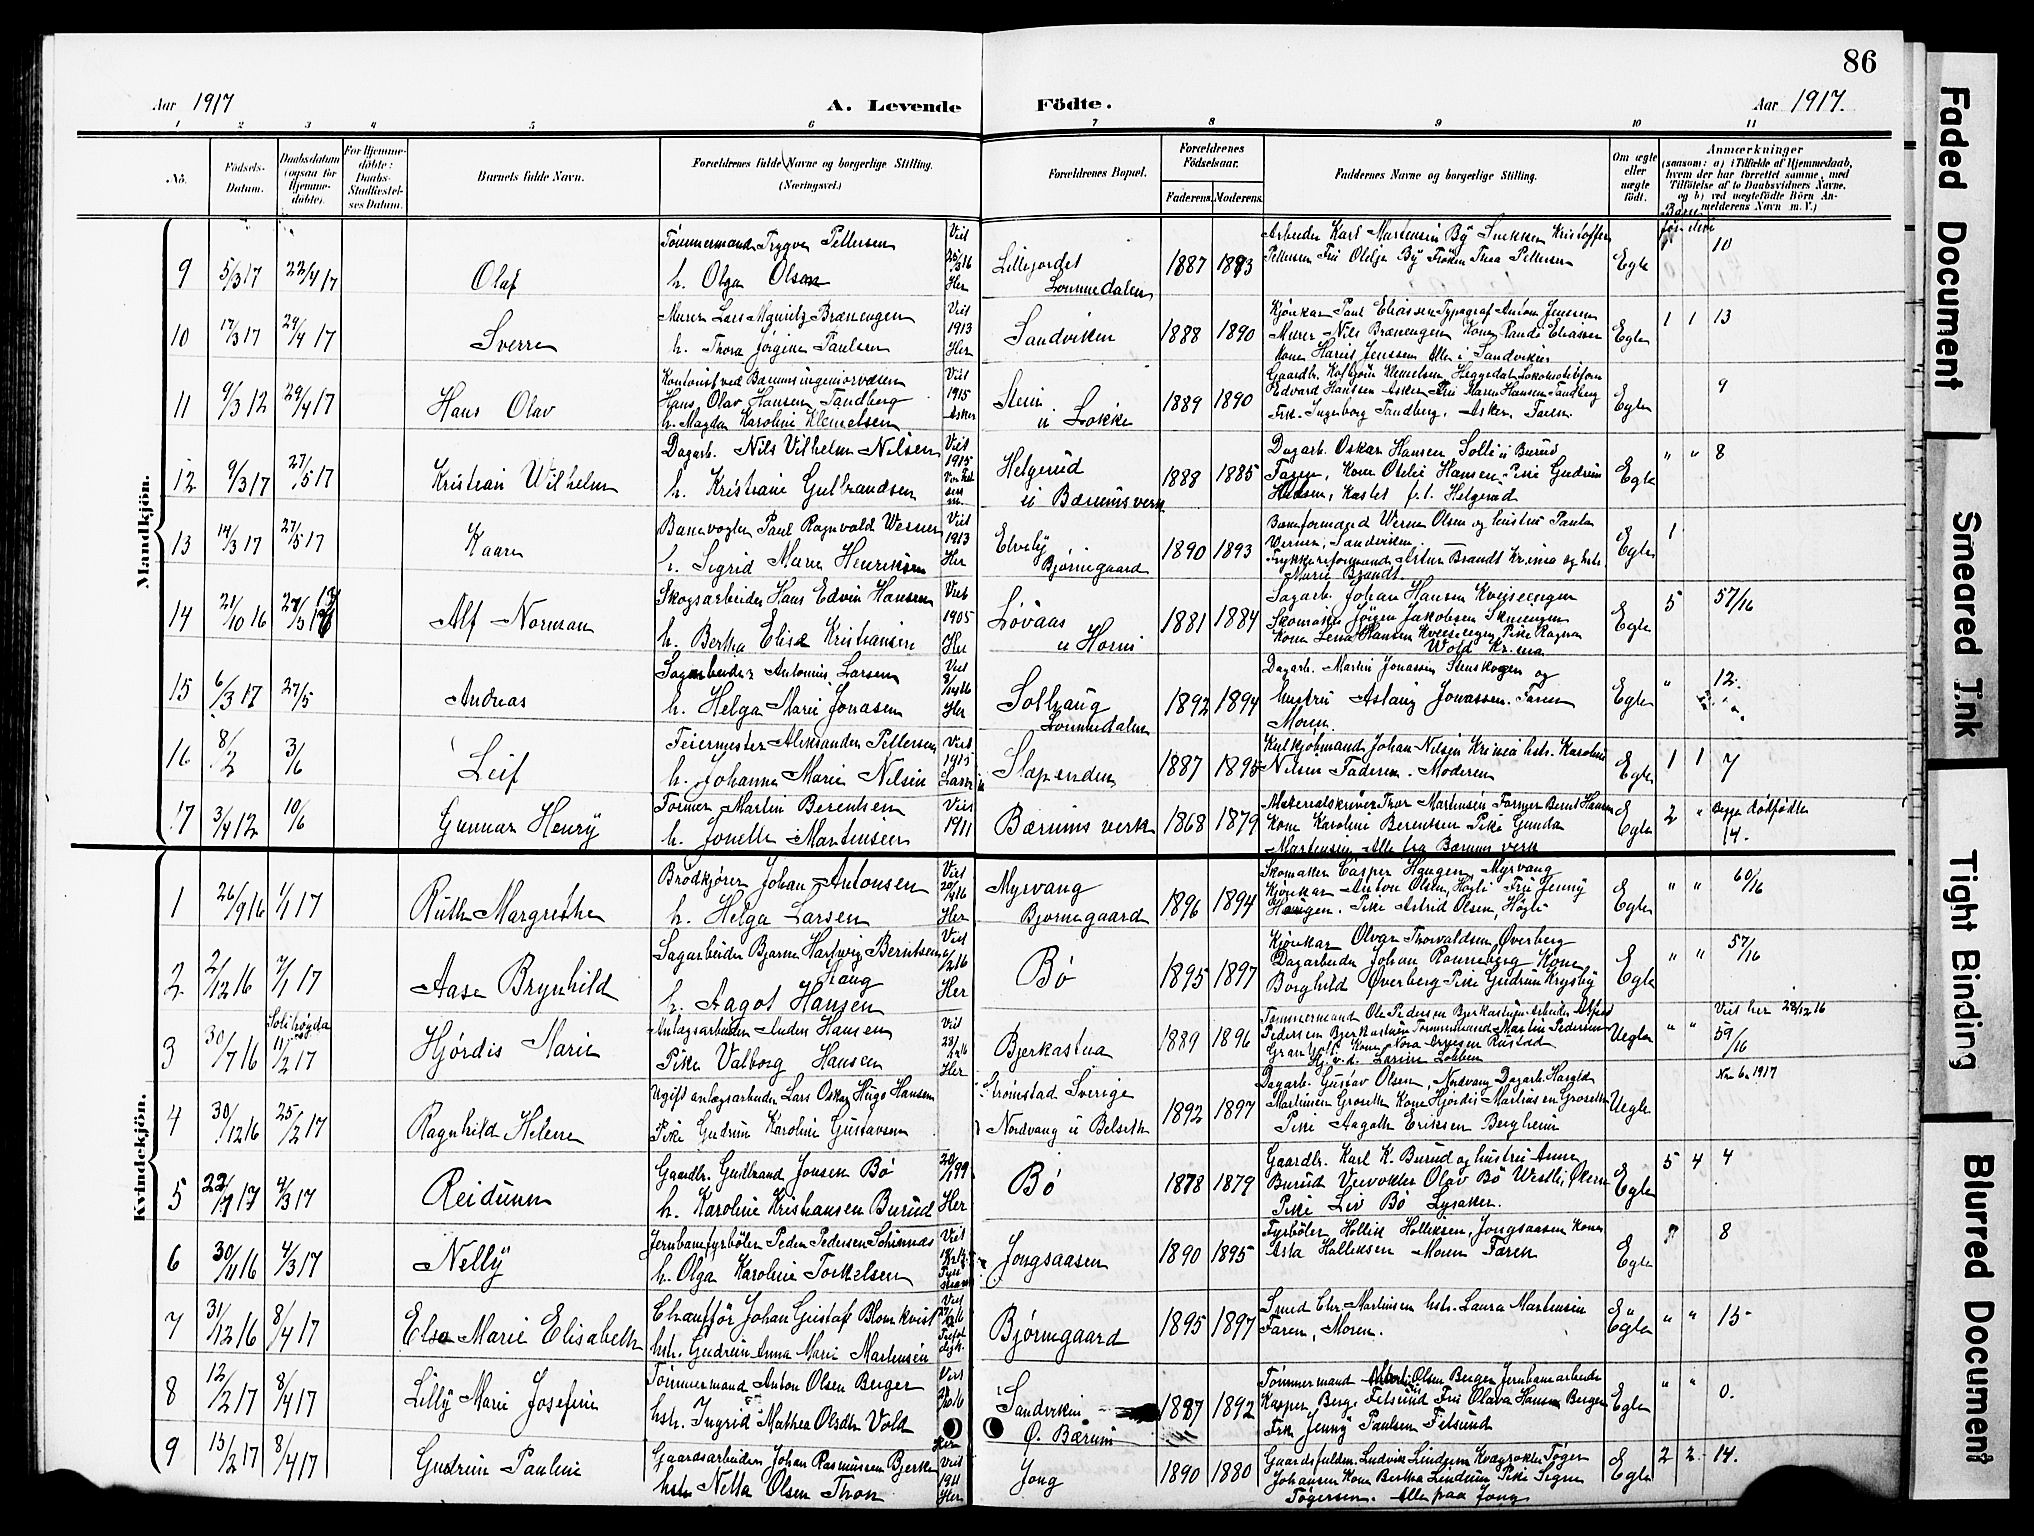 86
Aar 1917
A. Levende Födte.
Aar 1917.
1 2 3 4 5 6 7 8 9 10 11
No.
Födsels-Datum.
Daabsdatum (ogsaa for Hjemme-döbte).
For Hjemme-döbte: Daabs-Stadfæstel-ses Datum.
Barnets fulde Navn.
Forældrenes fulde Navne og borgerlige Stilling. (Næringsvei.)
Forældrenes Bopæl.
Forældrenes Födselsaar.
Faderens. Moderens.
Faddernes Navne og borgerlige Stilling.
Om ægte eller uægte født.
Anmærkninger
(saasom: a) i Tilfælde af Hjemmedaab, hvem der har forrettet samme, med Tilföielse af to Daabsvidners Navne, og b) ved uægtefödte Börn An-melderens Navn m. V.)
Mandkjön.
9 5/3 17 22/4 17 Olaf
Tømmermand Trygve Pettersen
h. Olga Olsen
Viet 25/3 16 Her
Lillejordet Lommedalen
1887 1893
Arbeider Karl Martinsen By Snekker Kristoffer
Pettersen Fru Oletje By Frøken Thea Pettersen
Egte 10
10 17/3 17 29/4 17 Sverre
Murer Lars Mauritz Brænengen
h. Thora Jørgine Paulsen
Viet 1913 Her
Sandviken
1888 1890
Kjørekar Paul Eliassen Typograf Anton Jenssen
Murer Nils Brænengen Kone Randi Eliassen
Kone Harriet Jenssen Alle i Sandviken
Egte 1 1 13
11 9/3 12 29/4 17 Hans Olav
Kontorist ved Bærums ingeniørvæsen
Hans Olav Hansen Tandberg
h. Magda Karoline Klemetsen
Viet 1915 Asker
Stein u Løkke
1889 1890
Edvard Hanssen Asker Fru Maren Hansen Tandberg
Frk. Ingeborg Tandberg, Asker. Faren.
Egte 9
12 9/3 17 27/5 17 Kristian Wilhelm
Dagarb. Nils Vilhelm Nilsen
h. Kristiane Gulbrandsen
Viet 1915
Helgerud u Bærumsverk
1888 1885
Dagarb. Oskar Hansen, Solli u Burud
Faren, Kone Otelie Hansen, Pike Gudrun
Hansen, Kastet f.t. Helgerud
Egte " " 8
13 14/3 17 27/5 17 Kaare
Banevogter Paul Ragnvald Werner
h. Sigrid Marie Henriksen
Viet 1913 Her
Elvely Bjørnegaard
1890 1893
Baneformand Werner Olsen og hustru Paula
Werner, Sandviken.
Trykkeriformand Artur Brandt Kr.ania og hstr.
Marie Brandt.
Egte 1
14 21/10 16 Alf Norman
Skogsarbeider Hans Edvin Hansen
h. Bertha Elise Kristiansen
Viet 1905 Her
Løvaas u Horni
1881 1884
Sagarb. Johan Hansen Kveiseengen
Skomaker Jørgen Jakobsen
Kone Lena Hansen Kveiseengen Pike Ragna
Wold Kr.ania
Egte 5 57/16
15 6/3 17 27/5 Andreas
Sagarbeider Antonius Larsen
h. Helga Marie Jonasen
Viet Her
Solhaug Lommedalen
1892 1894
Dagarb. Martin Jonassen Stenskogen og
hustru Aslaug Jonassen. Faren
Moren
Egte " 12.
16 8/2 3/6 Leif
Feiermester Aleksander Pettersen
h. Johanna Marie Nilsen
Viet 1915
Slependen
1887 1895
Kulkjøbmand Johan Nilsen Kr.ania hstr. Karoline
Nilsen Faderen. Moderen
Egte 1 1 7
17 3/4 12 10/6 Gunnar Henry
Former Martin Berentsen
h. Jonette Martensen
Viet 1911
Bærums verk
1868 1879
Materialskriver Thor Martensen Former Bernt Hansen
Kone Karoline Berentsen Pike Gunda
Martensen Alle fra Bærums verk
Egte 2 " dødfødte 14.
Kvindekjön.
1 26/9 16 1/1 17 Ruth Margrethe
Brødkjører Johan Antonsen
h. Helga Larsen
Viet Her
Myrvang Bjørnegaard
1896 1894
Skomaker Casper Haugen, Myrvang
Kjørekar Anton Olsen, Høgli Fru Jenny
Haugen. Pike Astrid Olsen, Høgli
Egte " " 60/16
2 2/12 16 7/1 17 Aase Brynhild
Sagarbeider Bjarne Hartwig Berntsen
Haug
h. Aagot Hansen
Viet Her
Bø
1895 1897
Kjørekar Olvar Thorvaldsen Øverberg
Dagarbeider Johan Rønneberg Kone
Borghild Øverberg Pike Gudrun Krysby
Egte " " 57/16
3 30/7 16 Solihøgda 11/2 17 Hjørdis Marie
Anlægsarbeider Anders Hansen
Pike Valborg Hansen
Viet Her
Bjerkastua
1889 1896
Tømmermand Ole Pedersen Bjerkastuen Arbeider
Pedersen Bjerkastuen Tømmermand Martin Pedersen
Uegte " " Viet her 28/12 16
59/16
4 30/12 16 25/2 17 Ragnhild Helene
Ugift anlægsarbeider Lars Oskar Hugo Hansen
Pike Gudrun Karoline Gustavsen
Strømstad Sverige
Nordvang u Belset
1892 1897
Dagarb. Gustav Olsen, Nordvang Dagarb. Harald
Martinsen Grosett Kone Hjørdis Martinsen Grosett
Pike Aagoth Eriksen Bergheim
Uegte
No 6 1917
5 22/1 17 4/3 17 Reidunn
Gaardbr. Gudbrand Jonsen Bø
h. Karoline Kristiansen Burud
Her
Bø
1878 1879
Gaardbr. Karl K. Burud og hustru Anna
Burud Veivokter Olav Bø Westli, Økern
Pike Liv Bø Lysaker.
Egte 5 4 4
6 30/11 16 4/3 17 Nelly
Jernbanefyrbøter Peder Pedersen
h. Olga Karoline Torkelsen
Viet
Jongsaasen
1890 1895
Fyrbøter Hollik Holliksen, Jongsaasen Kone
Asta Holliksen Moren Faren
Egte 8
7 31/12 16 8/4 17 Elsa Marie Elisabeth
Chauffør Johan Gustaf Blomkvist
hstr. Gudrun Anna Marie Martinsen
Viet
Bjørnegaard
1895 1897
Smed Chr. Martinsen hstr. Laura Martinsen
Faren, Moren.
Egte " " 15
8 12/2 17 8/4 17 Lilly Marie Josefine
Tømmermand Anton Olsen Berger
hstr. Ingrid Mathea Olsdtr Vold
Viet
Sandviken Ø. Bærum
1887 1892
Tømmermand Olsen Berger Jernbanearbeider
Kasper Berge Fetsund Fru Olava Hansen Berger
Frk Jenny Paulsen Fetsund
Egte " " 0.
9 13/2 17 8/4 17 Gudrun Pauline
Gaardsarbeider Johan Rasmussen Bjerke
hstr Netta Olsen Thon
Viet 1911 Her
Jong
1890 1880
Gaardsfuldm. Ludvik Lindgren Kvægrøkter Tøger
Johansen Kone Bertha Lindgren Pike Signe
Tøgersen. Alle paa Jong
Egte 2 2 14.
Faded Document
Smeared Ink
Tight Binding
Blurred Document